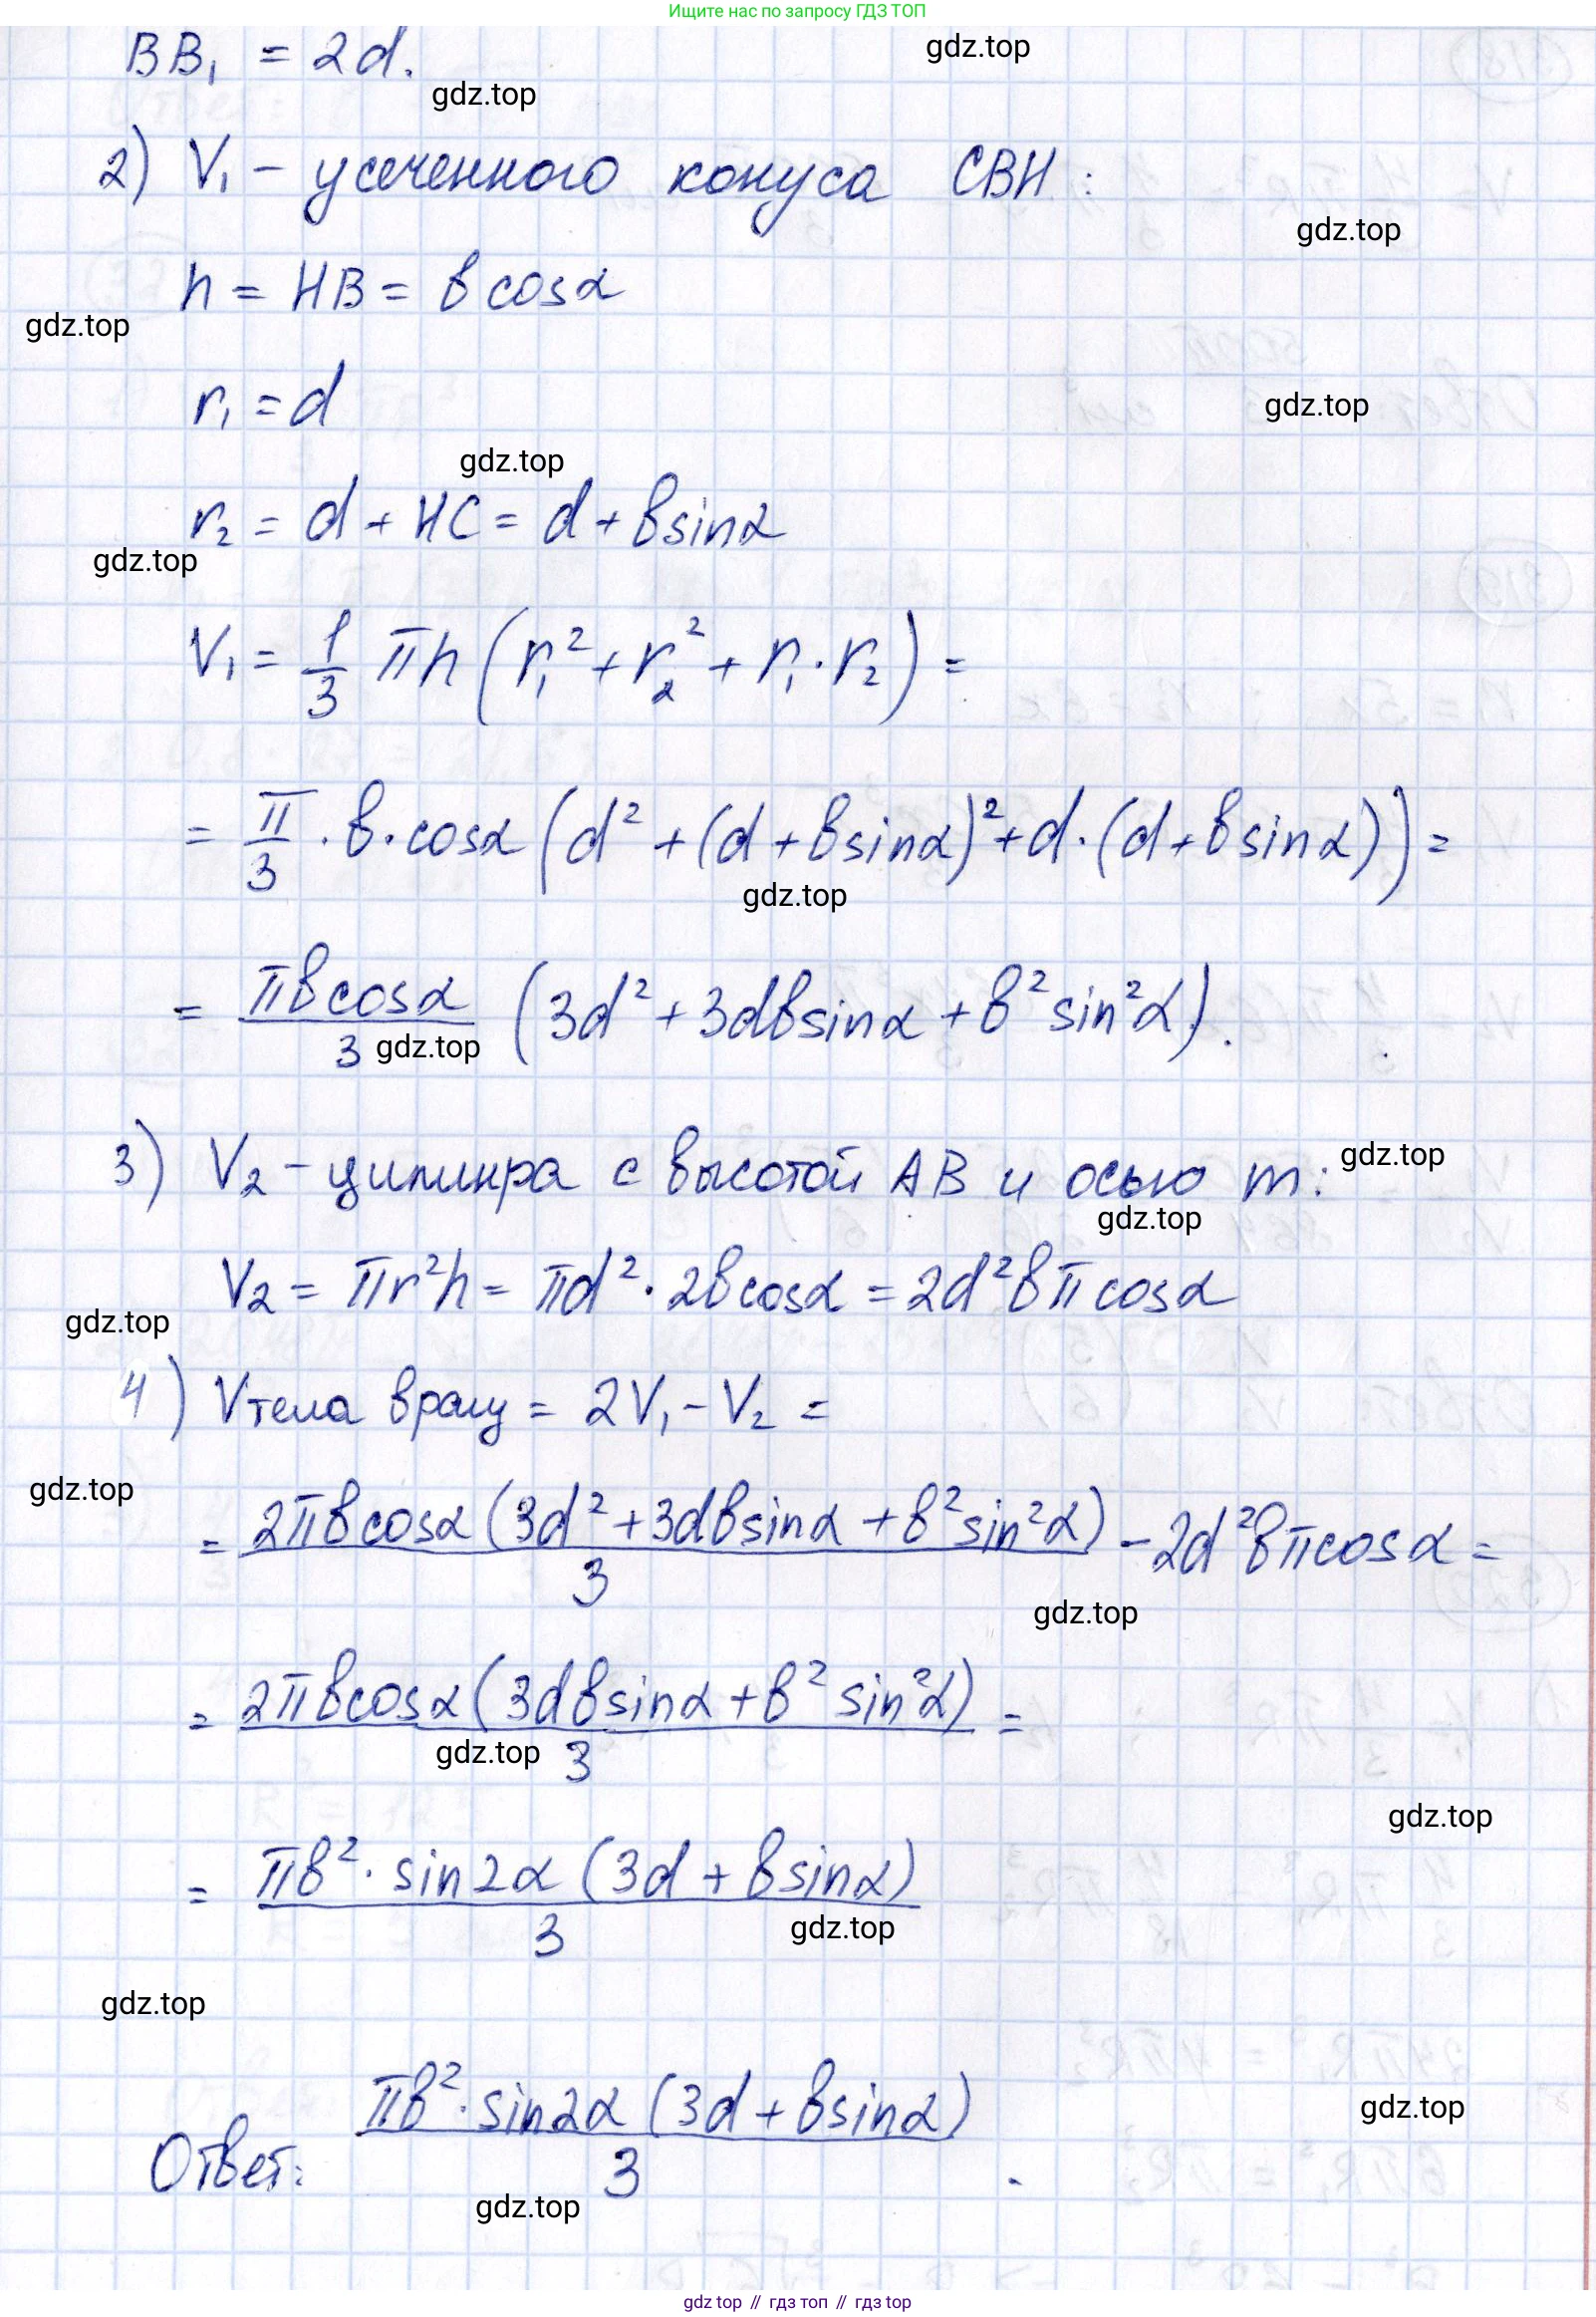 Ищите нас по запросу ГДЗ ТОП
BB₁ = 2d.
gdz.top
gdz.top
2) V₁ – усеченного конуса СВН:
gdz.top
h = HB = b cosα
gdz.top
r₁ = d
gdz.top
gdz.top
r₂ = d + HC = d + b sinα
gdz.top
V₁ = 1/3 πh (r₁² + r₂² + r₁·r₂) =
= π/3 · b · cosα (d² + (d + b sinα)² + d·(d + b sinα)) =
gdz.top
= πb cosα/3 (3d² + 3db sinα + b² sin²α).
gdz.top
3) V₂ – цилинра с высотой АВ и осью m:
gdz.top
gdz.top
V₂ = πr²h = πd²·2b cosα = 2d²bπ cosα
gdz.top
4) Vтела вращ = 2V₁ – V₂ =
gdz.top
= 2πb cosα (3d² + 3db sinα + b² sin²α)/3 – 2d²bπ cosα =
gdz.top
= 2πb cosα (3db sinα + b² sin²α)/3 =
gdz.top
gdz.top
= πb² · sin2α (3d + b sinα)/3
gdz.top
gdz.top
Ответ: πb² · sin2α (3d + b sinα)/3.
gdz.top
gdz.top
gdz top // гдз топ // гдз top